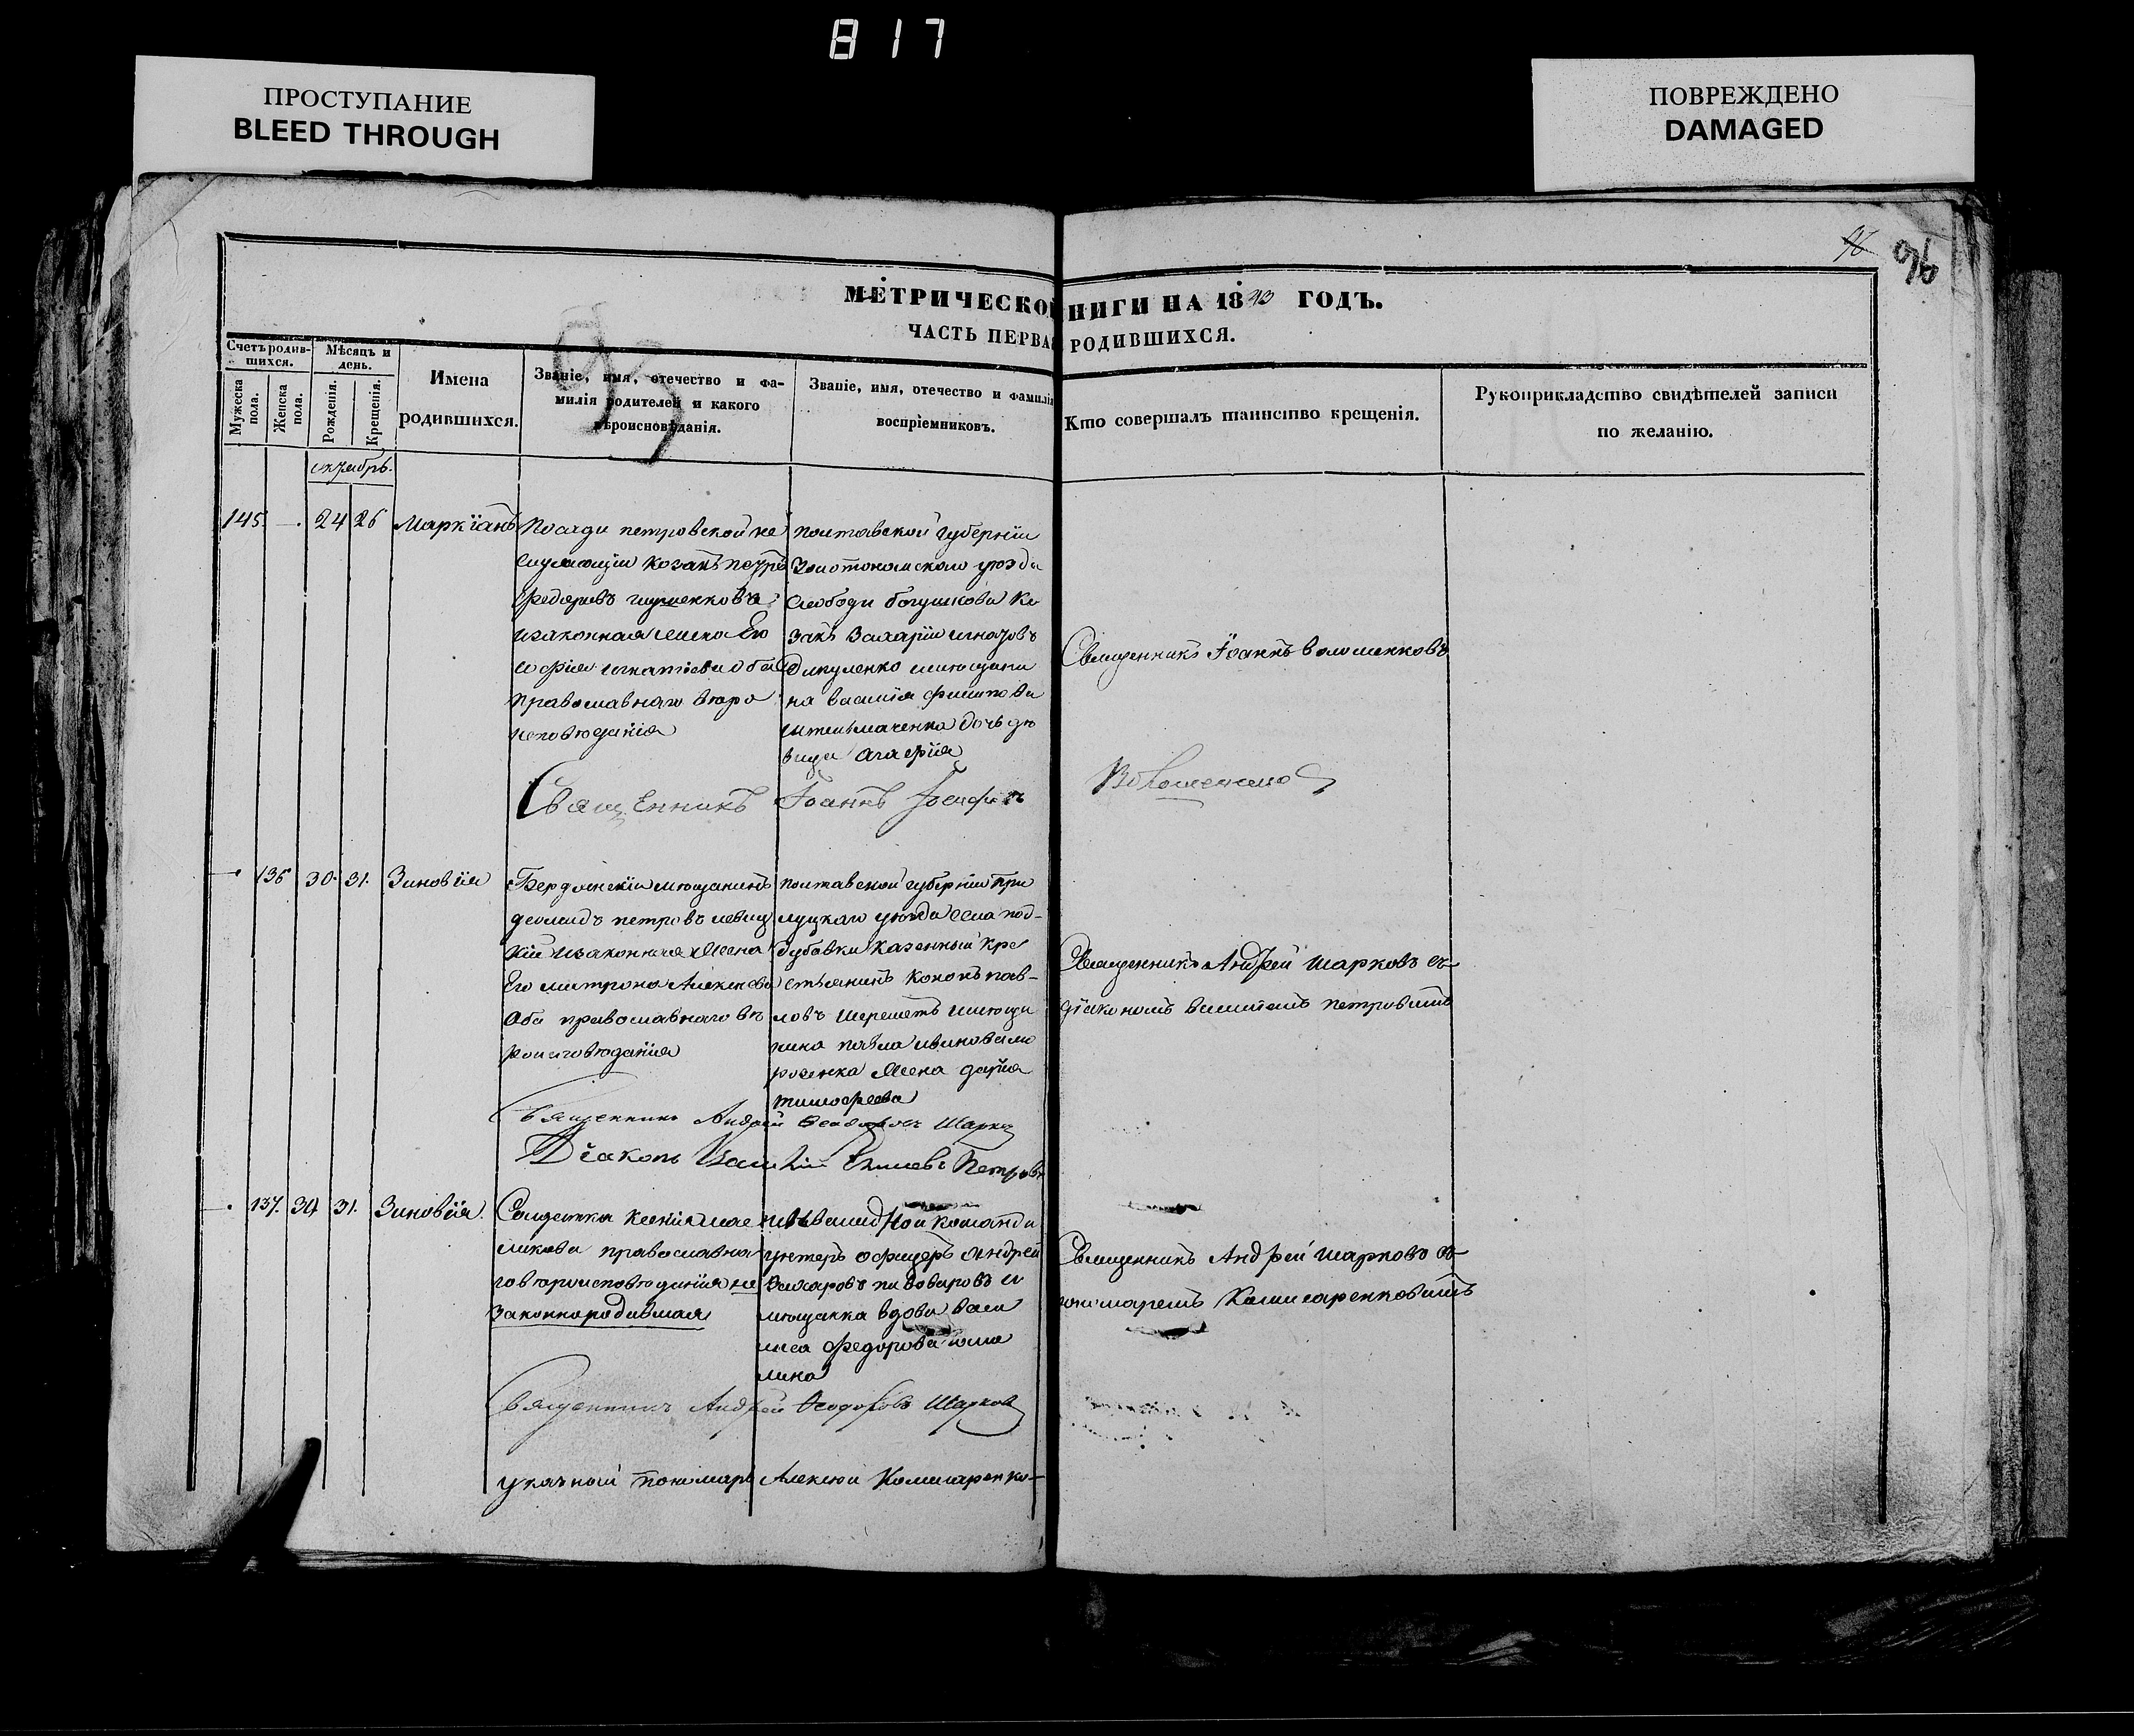 817
ПРОСТУПАНИЕ
BLEED THROUGH
ПОВРЕЖДЕНО
DAMAGED
96
96
МЕТРИЧЕСКОЙ
НИГИ НА 1843 ГОДЪ.
ЧАСТЬ ПЕРВАЯ
РОДИВШИХСЯ.
Счетъ родив-
шихся.
Мѣсяцъ и
день.
Мужеска
пола.
Женска
пола.
Рожденія.
Крещенія.
Имена
родившихся.
Званіе, имя, отечество и фа-
милія родителей и какого
вѣроисповѣданія.
Званіе, имя, отечество и фамилія
воспріемниковъ.
Кто совершалъ таинство крещенія.
Рукоприкладство свидѣтелей записи
по желанію.
октябрь.
145. — . 24 26 Маркіанъ
Посади петровской не
служащій козакъ петръ
Федоровъ
и законная жена Его
софія игнатіева оба
православнаго веро
исповеданія
полтавской губерніи
Золотоношскаго уезда
слободи богушкова ка
закъ Захарій
мещани
на василія филипова
дочь де
вица Агафія
Священникъ Іоаннъ волошенковъ
Священникъ Іоаннъ Іосифовъ
Волошенко
136 30. 31. Зиновія
Бердянскій мещанинъ
петровъ
кій и законная Жена
Его матрона Алексеева
Оба православнаго ве
роисповеданія
полтавской губерніи При
луцкаго уезда села под-
дубовки казенный кре
стьянинъ Кононъ пав-
ловъ шереметъ и мещи
нина павла иванова мо
розенка Жена дарія
тимофеева
Священникъ Андрей шарковъ съ
діакономъ василіемъ петровымъ
Священникъ Андрей Феодоровъ Шарков
Діаконъ Василій Петровъ
137. 30 31. Зиновія.
Солдатка ксенія
ликова православна
го вероисповеданія не
законнородившая
инвалидной команди
унтеръ офицеръ Андрей
Захаровъ пивоваровъ и
мещанка вдова васи
лиса федорова
Священникъ Андрей шарковъ съ
пономаремъ Комисаренковимъ
Священникъ Андрей Феодоровъ Шарков
указный пономарь Алексей Комисаренко